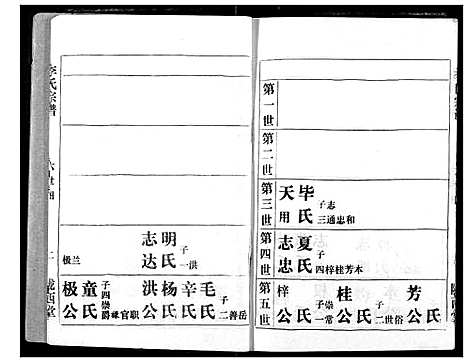 第一世
第二世
第三世
天用
毕氏
子志
三通忠和
第四世
志忠
夏氏
子
四梓桂芳本
第五世
梓公氏
子崇
一常
桂公氏
子
二世俗
芳公氏
李氏宗谱
志达
明氏
子
一洪
极兰
极公
童氏
子四崇爵禄官职
洪公
杨氏
辛氏
毛氏
子
二善岳